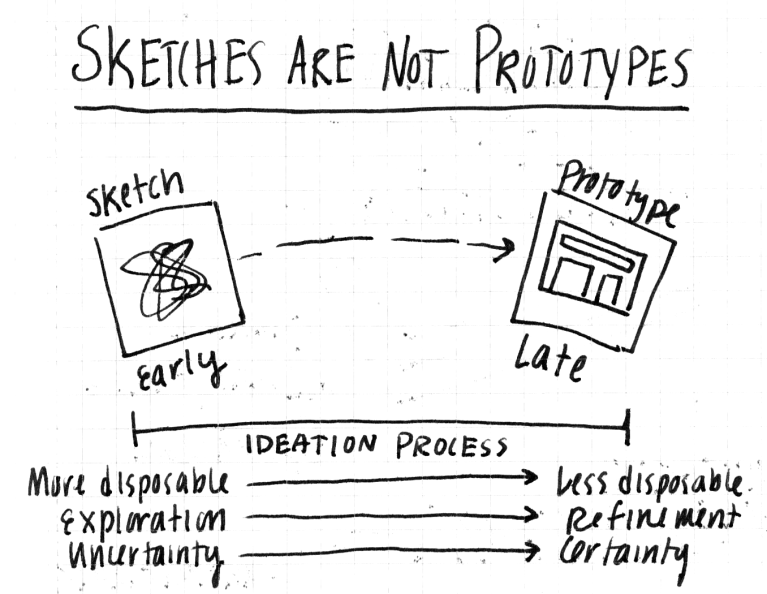 SKETCHES ARE NOT PROTOTYPES
Sketch
Prototype
Early
Late
IDEATION PROCESS
More disposable
Less disposable
Exploration
Refinement
Uncertainty
Certainty